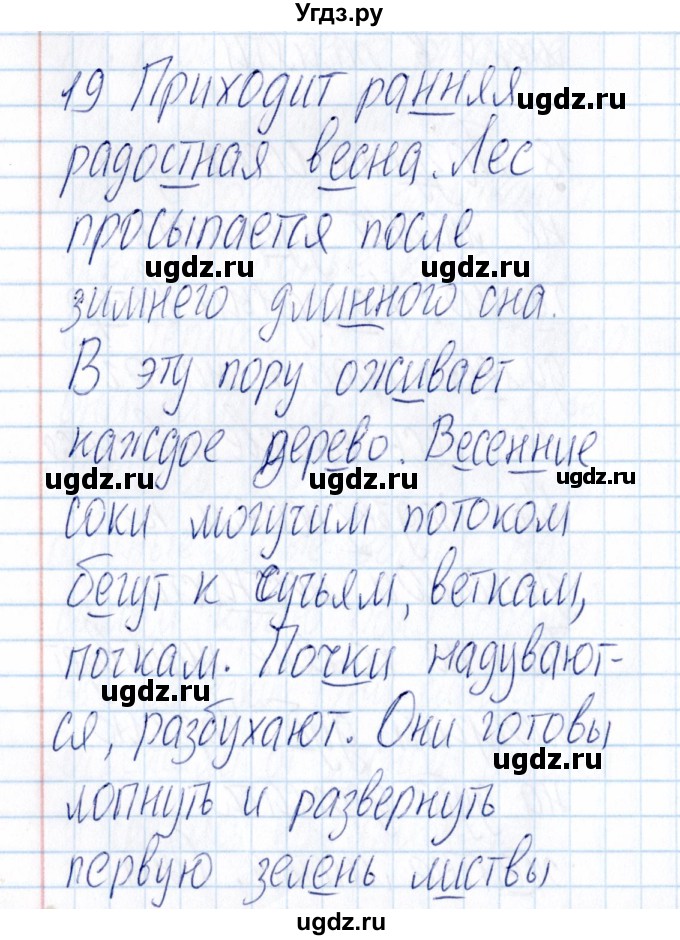 Угдз.ру
19 Приходит ранняя
ugdz.ru
радостная весна. Лес
просыпается после
ugdz.ru ugdz.ru
зимнего длинного сна.
В эту пору оживает
каждое дерево. Весенние
ugdz.ru ugdz.ru ugdz.ru
соки могучим потоком
бегут к сучьям, веткам,
почкам. Почки надувают-
ugdz.ru
ся, разбухают. Они готовы
ugdz.ru
лопнуть и развернуть
первую зелень листвы
ugdz.ru